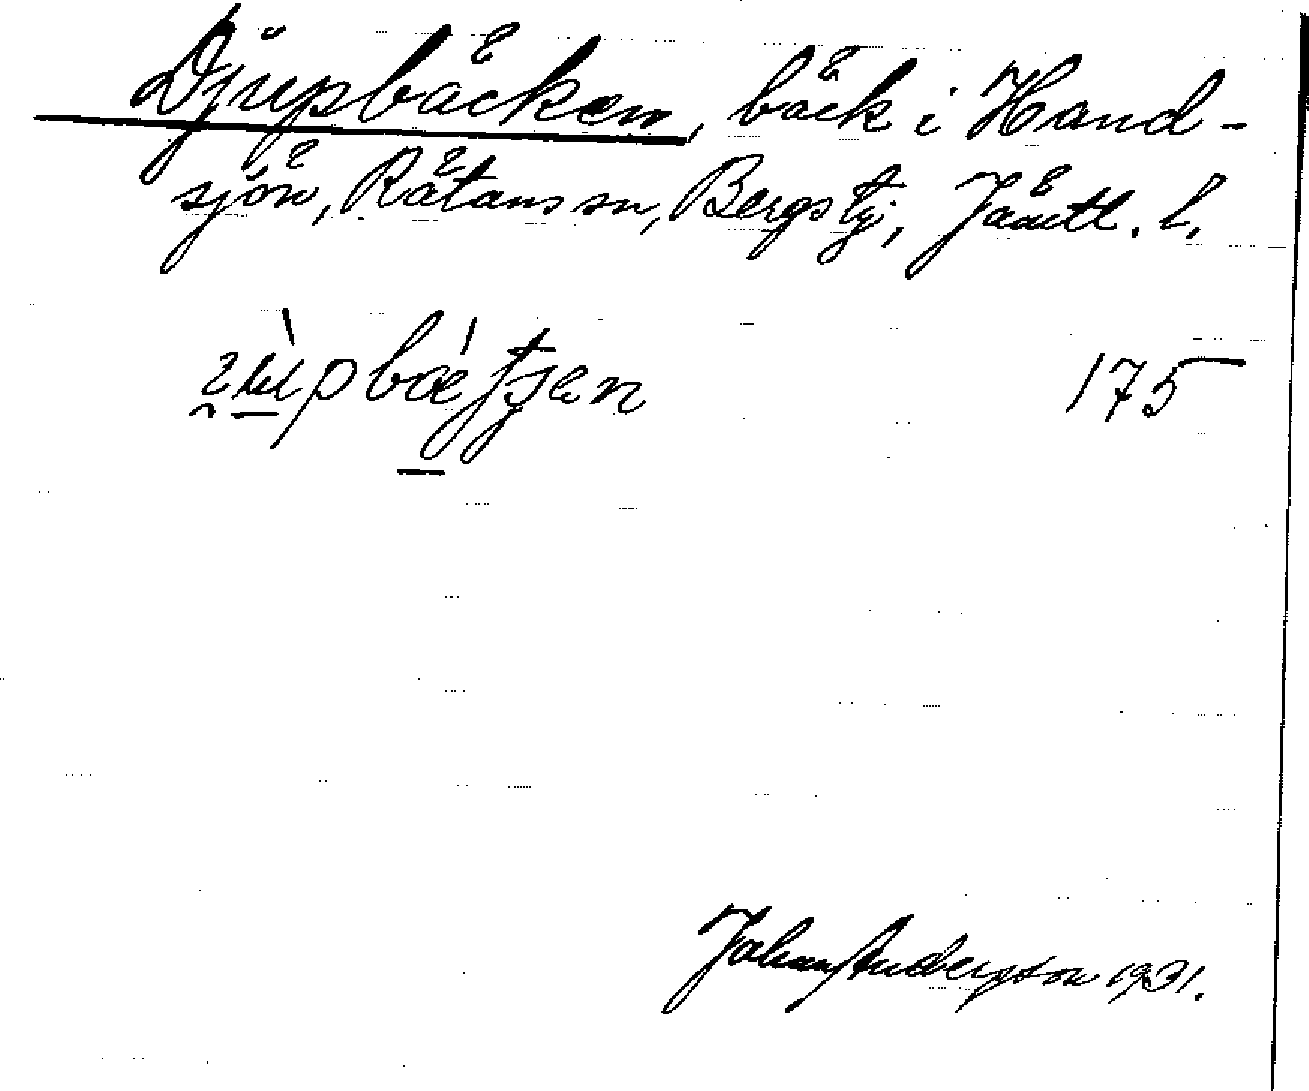 Djupbäcken, bäck i Hand-
sjön, Rätans sn, Bergs tg, Jämtl. l.
175
Johan Andersson 1931.